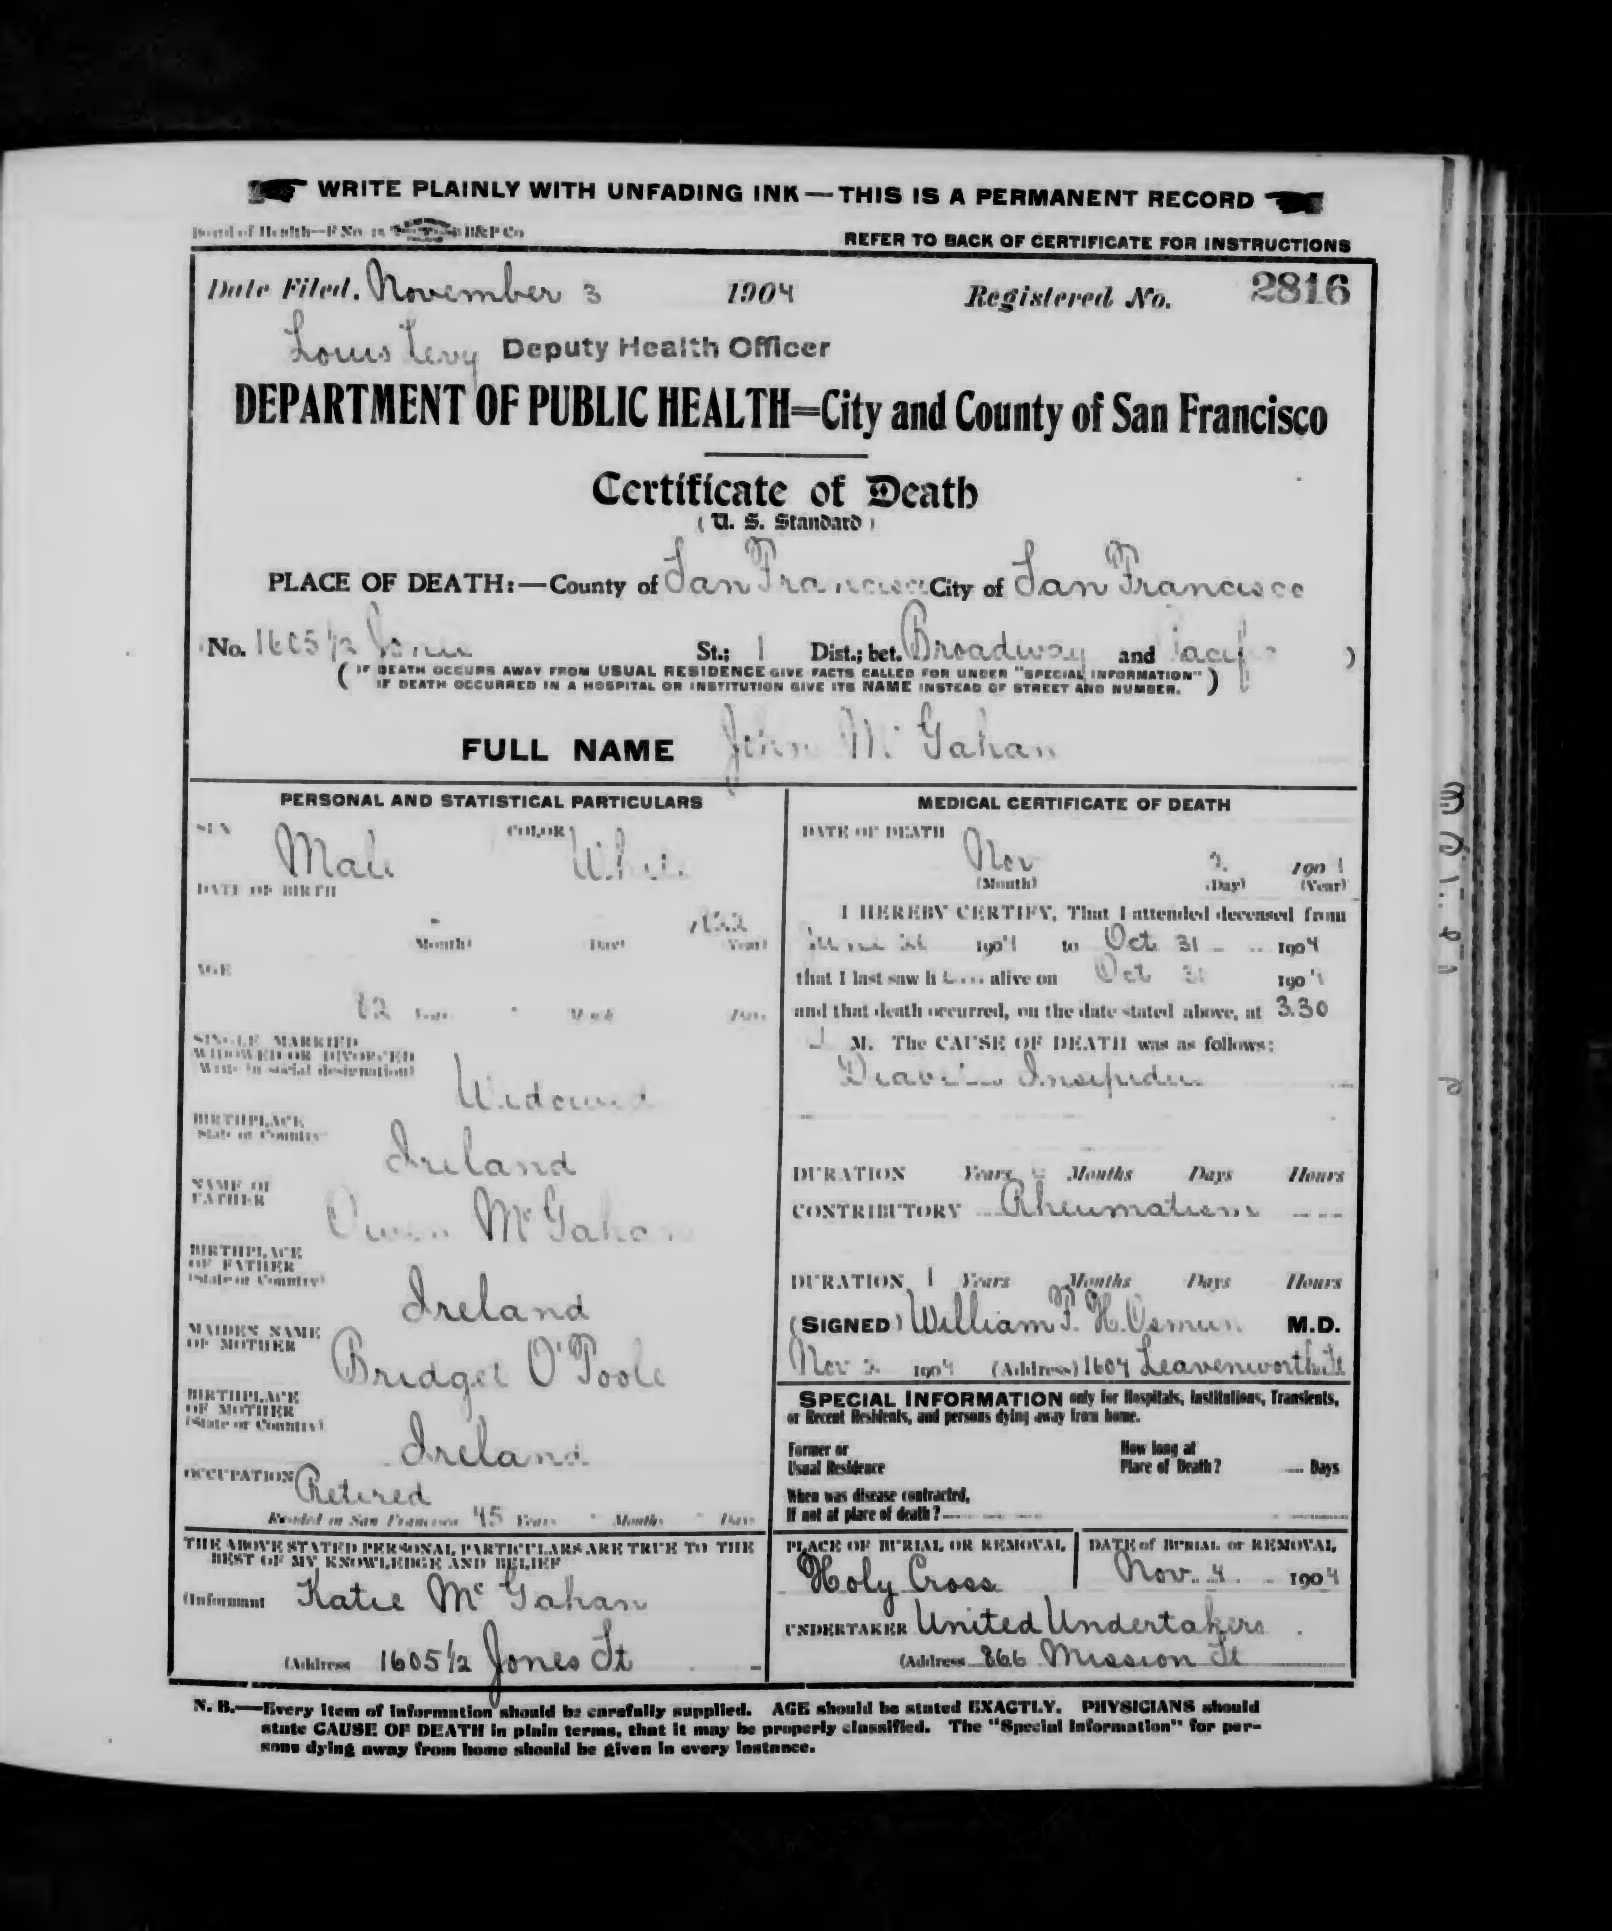 WRITE PLAINLY WITH UNFADING INK — THIS IS A PERMANENT RECORD
Board of Health—F No. 15 B&P Co
REFER TO BACK OF CERTIFICATE FOR INSTRUCTIONS
Date Filed, November 3 1904 Registered No. 2816
Louis Levy Deputy Health Officer
DEPARTMENT OF PUBLIC HEALTH=City and County of San Francisco
Certificate of Death
(U. S. Standard)
PLACE OF DEATH:—County of San Francisco City of San Francisco
No. 1605 1/2 Jones St.; 1 Dist.; bet. Broadway and Pacific )
( IF DEATH OCCURS AWAY FROM USUAL RESIDENCE GIVE FACTS CALLED FOR UNDER "SPECIAL INFORMATION"
IF DEATH OCCURRED IN A HOSPITAL OR INSTITUTION GIVE ITS NAME INSTEAD OF STREET AND NUMBER. )
FULL NAME John McGahan
PERSONAL AND STATISTICAL PARTICULARS
SEX Male COLOR White
DATE OF BIRTH
1822
(Month) (Day) (Year)
AGE
82 Years Months Days
SINGLE, MARRIED
WIDOWED OR DIVORCED
(Write in social designation)
Widowed
BIRTHPLACE
(State or Country)
Ireland
NAME OF
FATHER
Owen McGahan
BIRTHPLACE
OF FATHER
(State or Country)
Ireland
MAIDEN NAME
OF MOTHER
Bridget O'Toole
BIRTHPLACE
OF MOTHER
(State or Country)
Ireland
OCCUPATION Retired
Resided in San Francisco 45 Years Months Days
THE ABOVE STATED PERSONAL PARTICULARS ARE TRUE TO THE
BEST OF MY KNOWLEDGE AND BELIEF
(Informant Katie McGahan
(Address 1605 1/2 Jones St
MEDICAL CERTIFICATE OF DEATH
DATE OF DEATH
Nov 2 1904
(Month) (Day) (Year)
I HEREBY CERTIFY, That I attended deceased from
June 1904 to Oct. 31 1904
that I last saw h alive on Oct 31 1904
and that death occurred, on the date stated above, at 3.30
M. The CAUSE OF DEATH was as follows:
Diabetes Insipidus
DURATION Years Months Days Hours
CONTRIBUTORY Rheumatism
DURATION 1 Years Months Days Hours
(SIGNED) William P. H. Osmun M.D.
Nov 2 1904 (Address) 1604 Leavenworth St
SPECIAL INFORMATION only for Hospitals, Institutions, Transients,
or Recent Residents, and persons dying away from home.
Former or
Usual Residence
How long at
Place of Death? Days
When was disease contracted,
If not at place of death?
PLACE OF BURIAL OR REMOVAL
Holy Cross
DATE of BURIAL or REMOVAL
Nov. 4 1904
UNDERTAKER United Undertakers
(Address 866 Mission St
N. B.—Every item of information should be carefully supplied. AGE should be stated EXACTLY. PHYSICIANS should
state CAUSE OF DEATH in plain terms, that it may be properly classified. The "Special Information" for per-
sons dying away from home should be given in every instance.